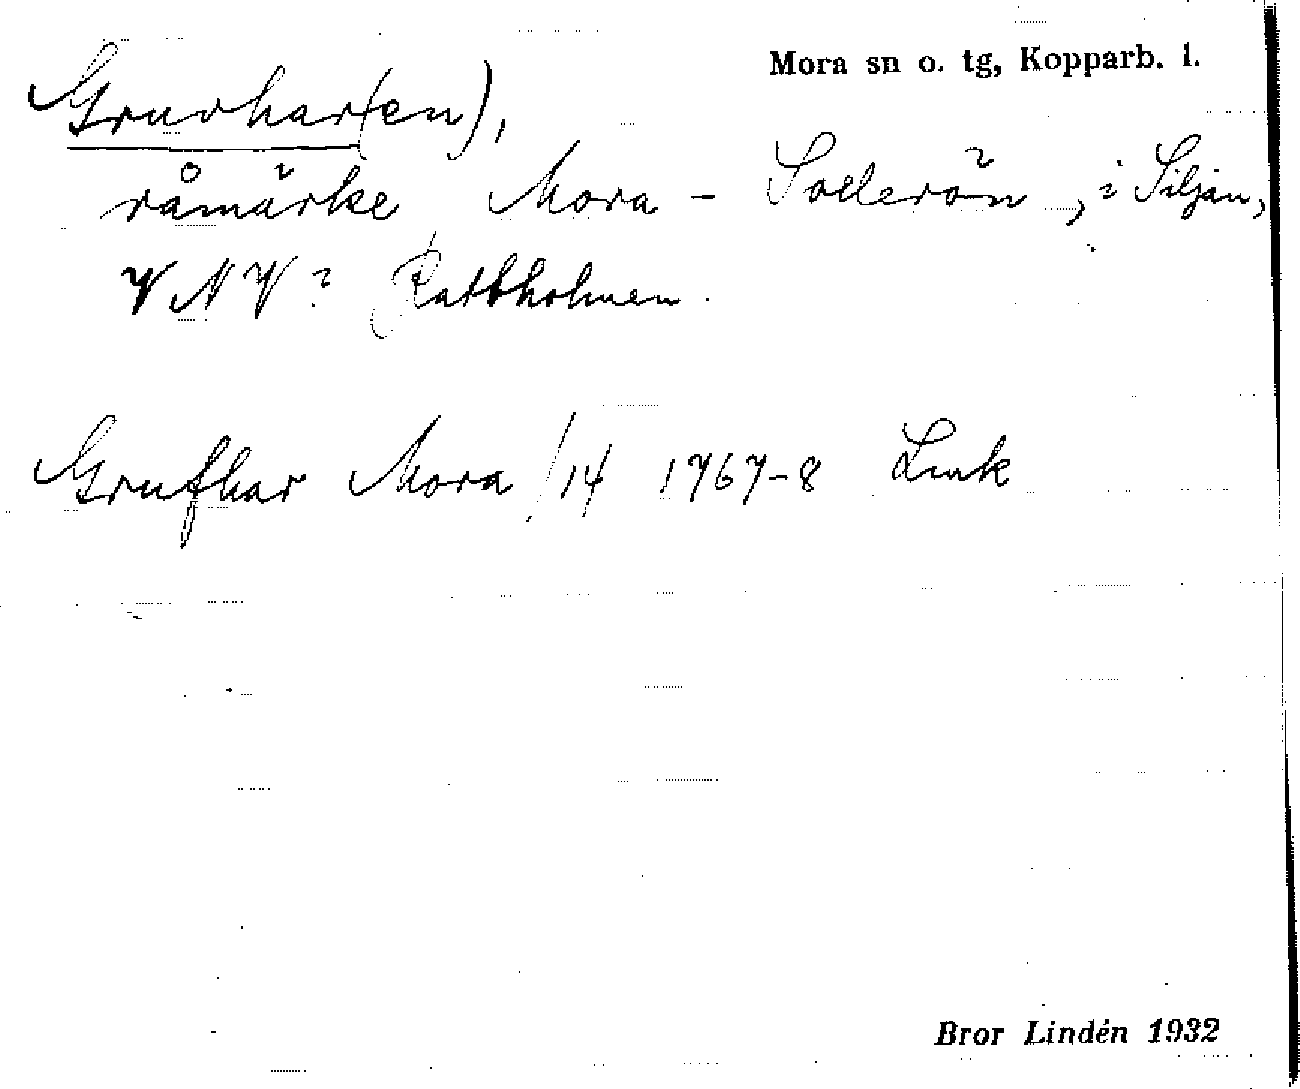 Mora sn o. tg, Kopparb. l.
Gruvhar(en),
råmärke Mora - Sollerön, i Siljan,
VNV? Rattholmen.
Grufhar Mora /14 1767-8 Link
Bror Lindén 1932